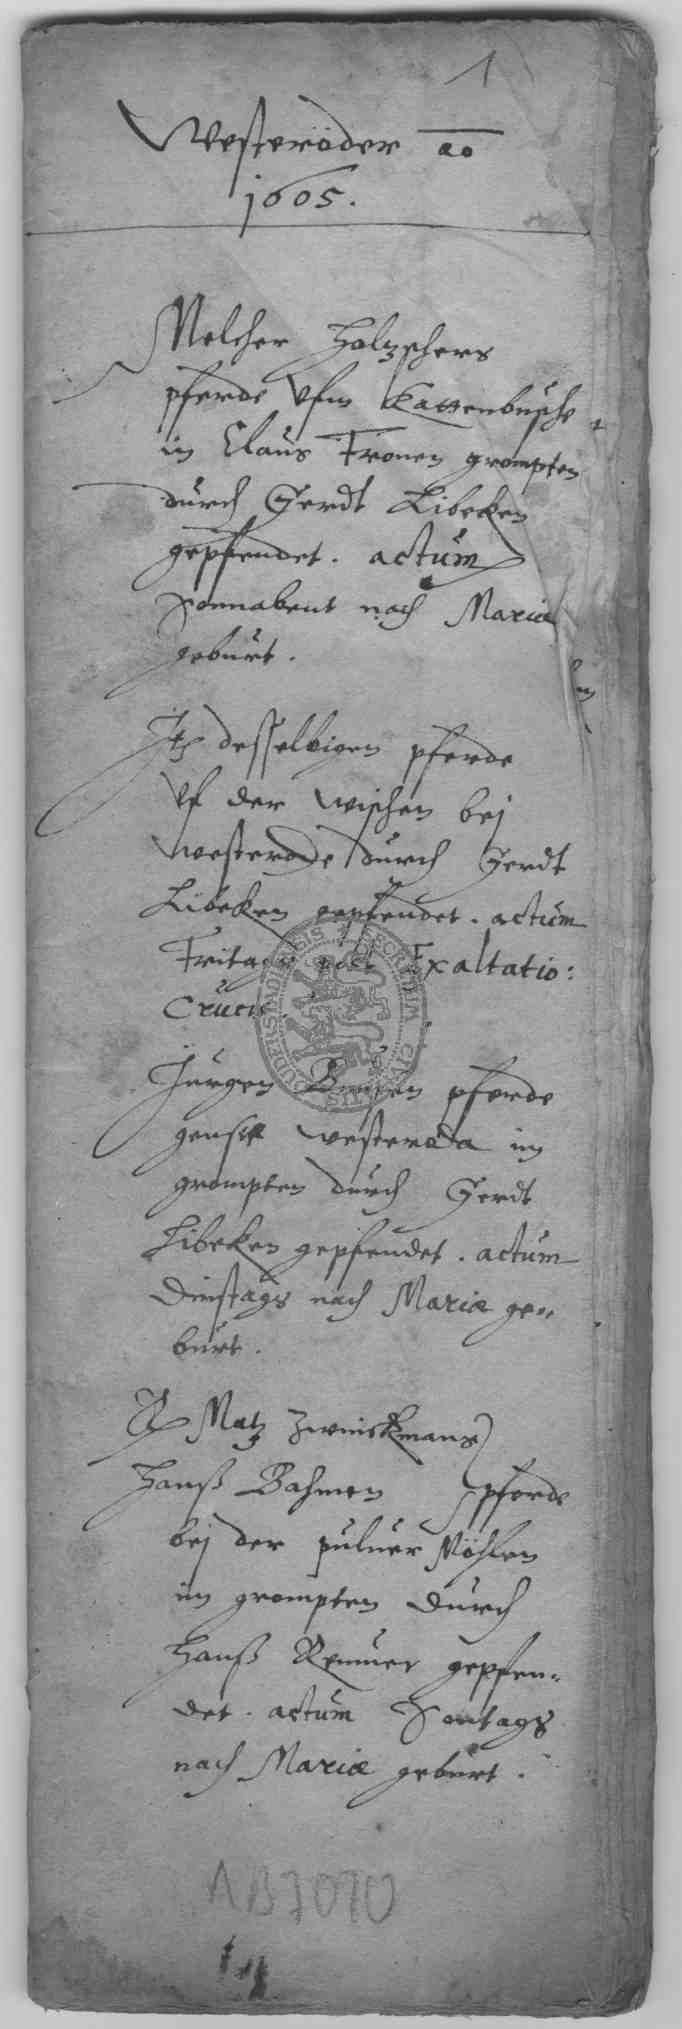 1
Westeröder ao
1605.
Melcher Holzschers
pferde Vfm Katzenbusche
in Claus Fronen grompten
durch Gerdt Libeken
gepfendet. actum
Sonnabent nach Mariæ
geburt.
It desselbigen pferde
Vf der wischen bej
westerode durch Gerdt
Libeken gepfendet. actum
Fritags nach Exaltatio:
Crucis.
Jurgen pferde
westeroda im
grompten durch Gerdt
Libeken gepfendet. actum
Dinstags nach Mariæ ge=
burt.
Matz Zwinckmans
Hanß Bahmen pferde
bej der puluer Möhlen
im grompten durch
Hanß Remmer gepfen=
det. actum Sontags
nach Mariæ geburt.
AB 7070